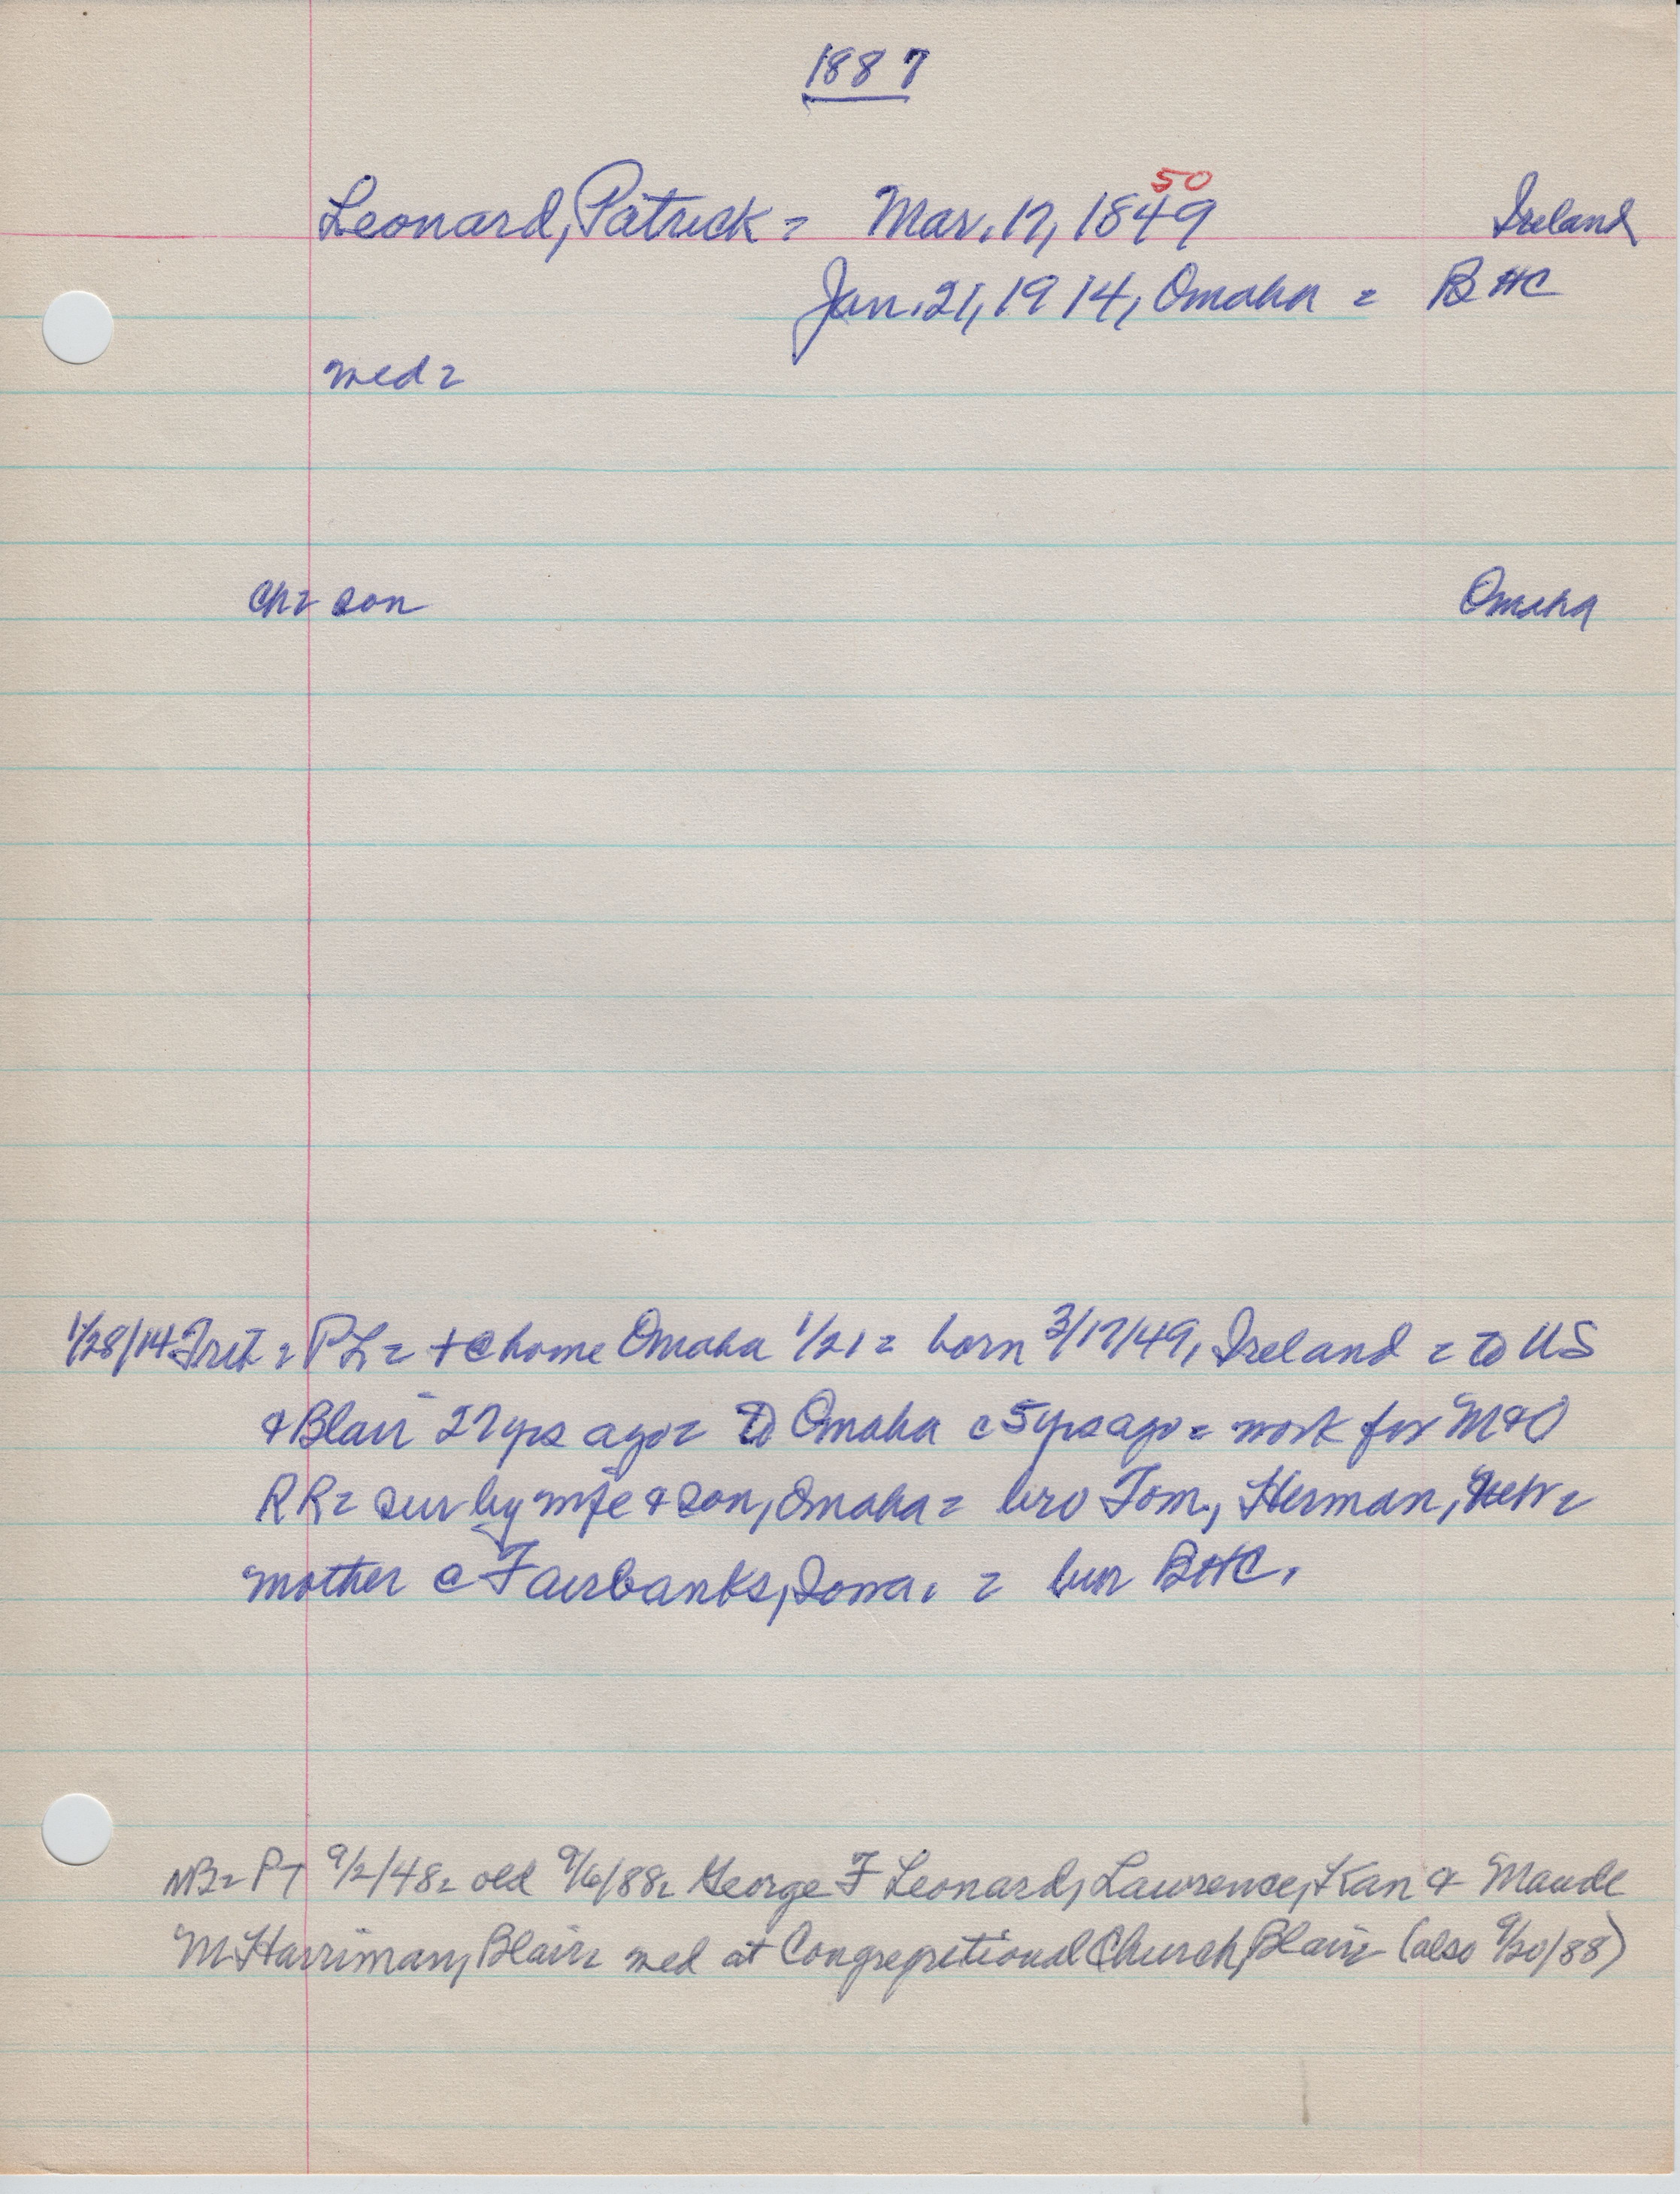 1887
50
Leonard, Patrick = Mar. 17, 1849 Ireland
Jan. 21, 1914, Omaha = BHC
wed =
ch = son Omaha
1/28/14 = PL = + @ home Omaha 1/21 = born 3/17/49, Ireland = to US
& Blair 27 yrs ago = to Omaha c 5 yrs ago = work for M&O
RR = sur by wife & son, Omaha = bro Tom, Herman,
mother @ Fairbanks, Iowa. = bur BHC.
NB = PT 9/2/48 = old 9/6/88 = George F Leonard, Lawrence, Kan & Maude
M Harriman, Blair = wed at Congregational Church, Blair (also 9/20/88)